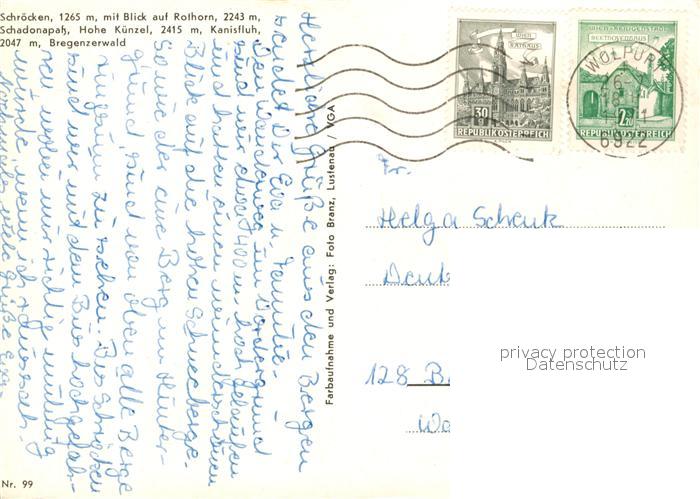 Schröcken, 1265 m, mit Blick auf Rothorn, 2243 m,
Schadonapaß, Hohe Künzel, 2415 m, Kanisfluh,
2047 m, Bregenzerwald
Herzliche Grüße aus den Bergen
sendet Dir Eva u. Familie.
Den Wanderweg im Vordergrund
sind wir etwa 400 m hoch gelaufen
und hatten einen wunderschönen
Blick auf die hohen Schneeberge.
So wie der eine Berg im Hinter-
grund, sind von oben alle Berge
ringsum zu sehen. Bis Schröcken
sind wir mit dem Bus hochgefah-
ren
Nochmals viele Grüße Eva
Nr. 99
Farbaufnahme und Verlag: Foto Branz, Lustenau / VGA
WIEN
RATHAUS
30
REPUBLIK ÖSTERREICH
WIEN-HEILIGENSTADT
BEETHOVENHAUS
2.20
REPUBLIK ÖSTERREICH
WOLFURT
6922
Fr.
Helga Schenk
128 B
privacy protection
Datenschutz